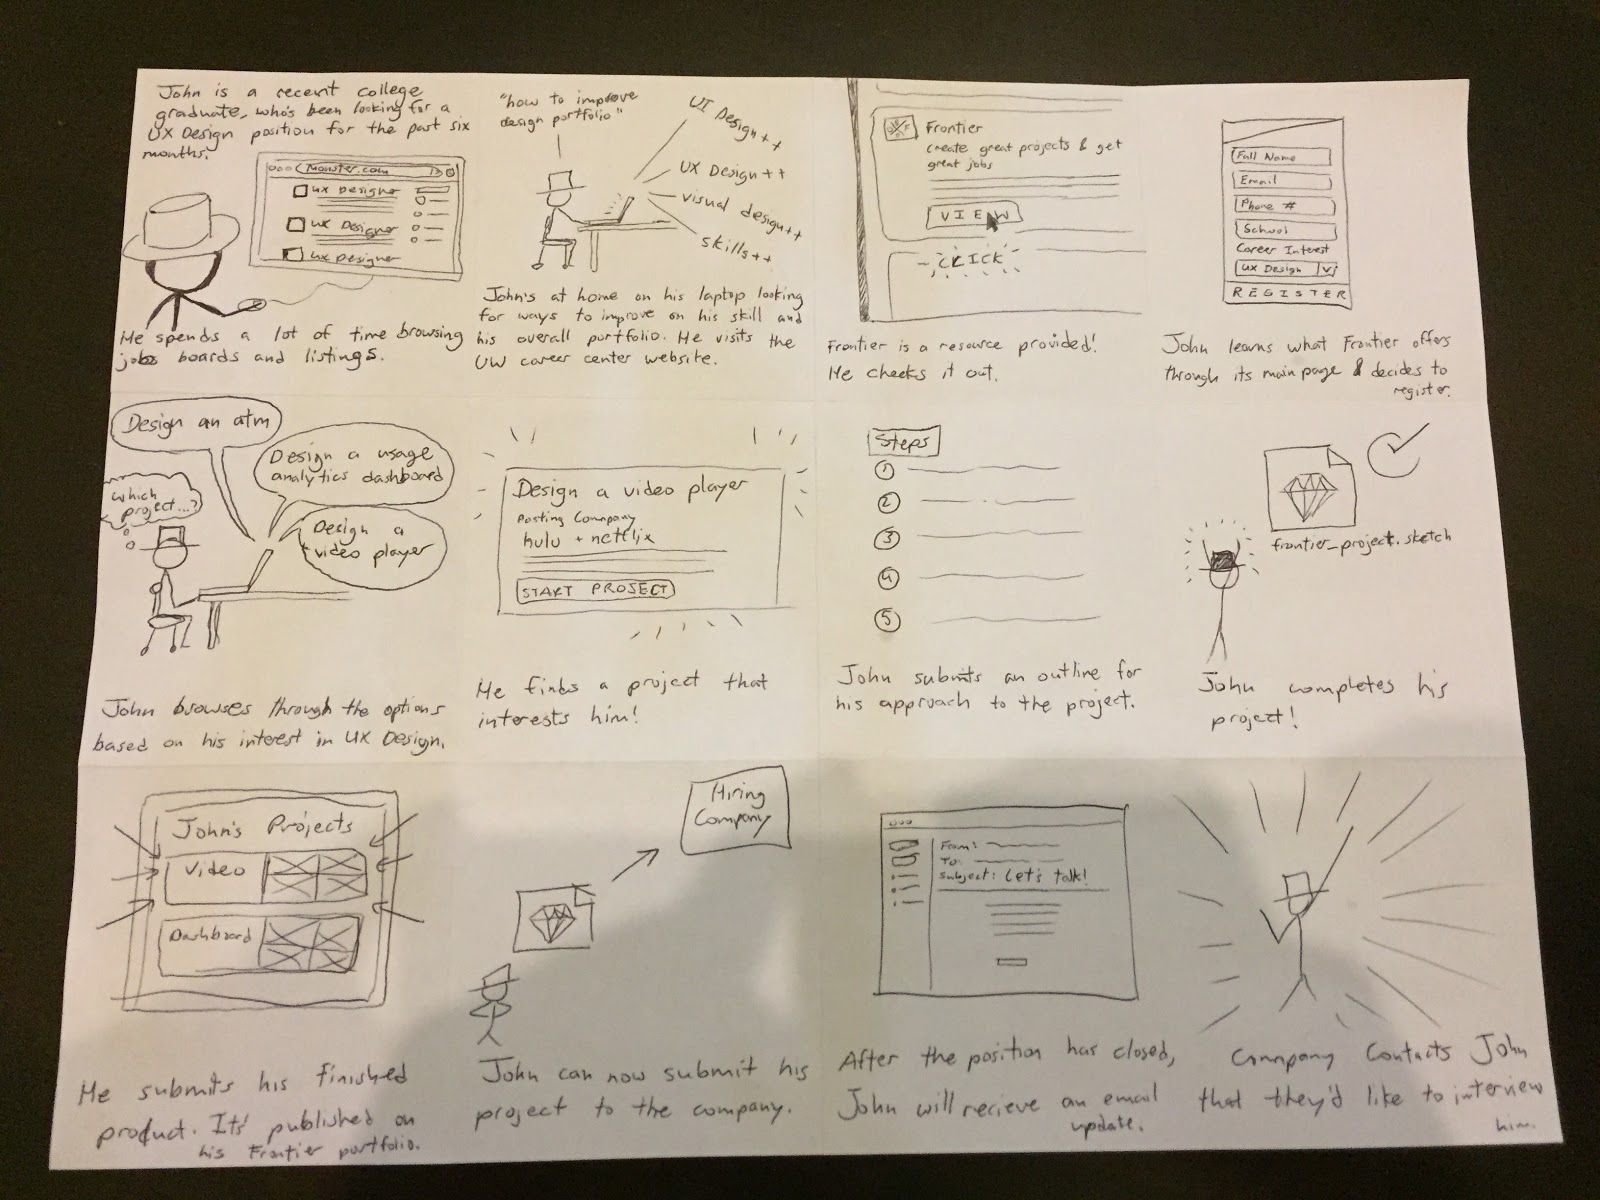 John is a recent college
graduate, who's been looking for a
UX Design position for the past six
months.
monster.com
UX Designer
UX Designer
UX Designer
He spends a lot of time browsing
jobs boards and listings.
"how to improve
design portfolio"
UI Design++
UX Design++
visual design++
skills++
John's at home on his laptop looking
for ways to improve on his skill and
his overall portfolio. He visits the
UW career center website.
Frontier
create great projects & get
great jobs
VIEW
CLICK
Frontier is a resource provided!
He checks it out.
Full Name
Email
Phone #
School
Career Interest
UX Design
REGISTER
John learns what Frontier offers
through its main page & decides to
register.
Design an atm
Design a usage
analytics dashboard
which
project...?
Design a
video player
John browses through the options
based on his interest in UX Design.
Design a video player
Posting Company
hulu + netflix
START PROJECT
He finds a project that
interests him!
Steps
1
2
3
4
5
John submits an outline for
his approach to the project.
frontier_project.sketch
John completes his
project!
John's Projects
Video
Dashboard
He submits his finished
product. It's published on
his Frontier portfolio.
Hiring
Company
John can now submit his
project to the company.
From:
To:
Subject: Let's talk!
After the position has closed,
John will recieve an email
update.
Company Contacts John
that they'd like to interview
him.